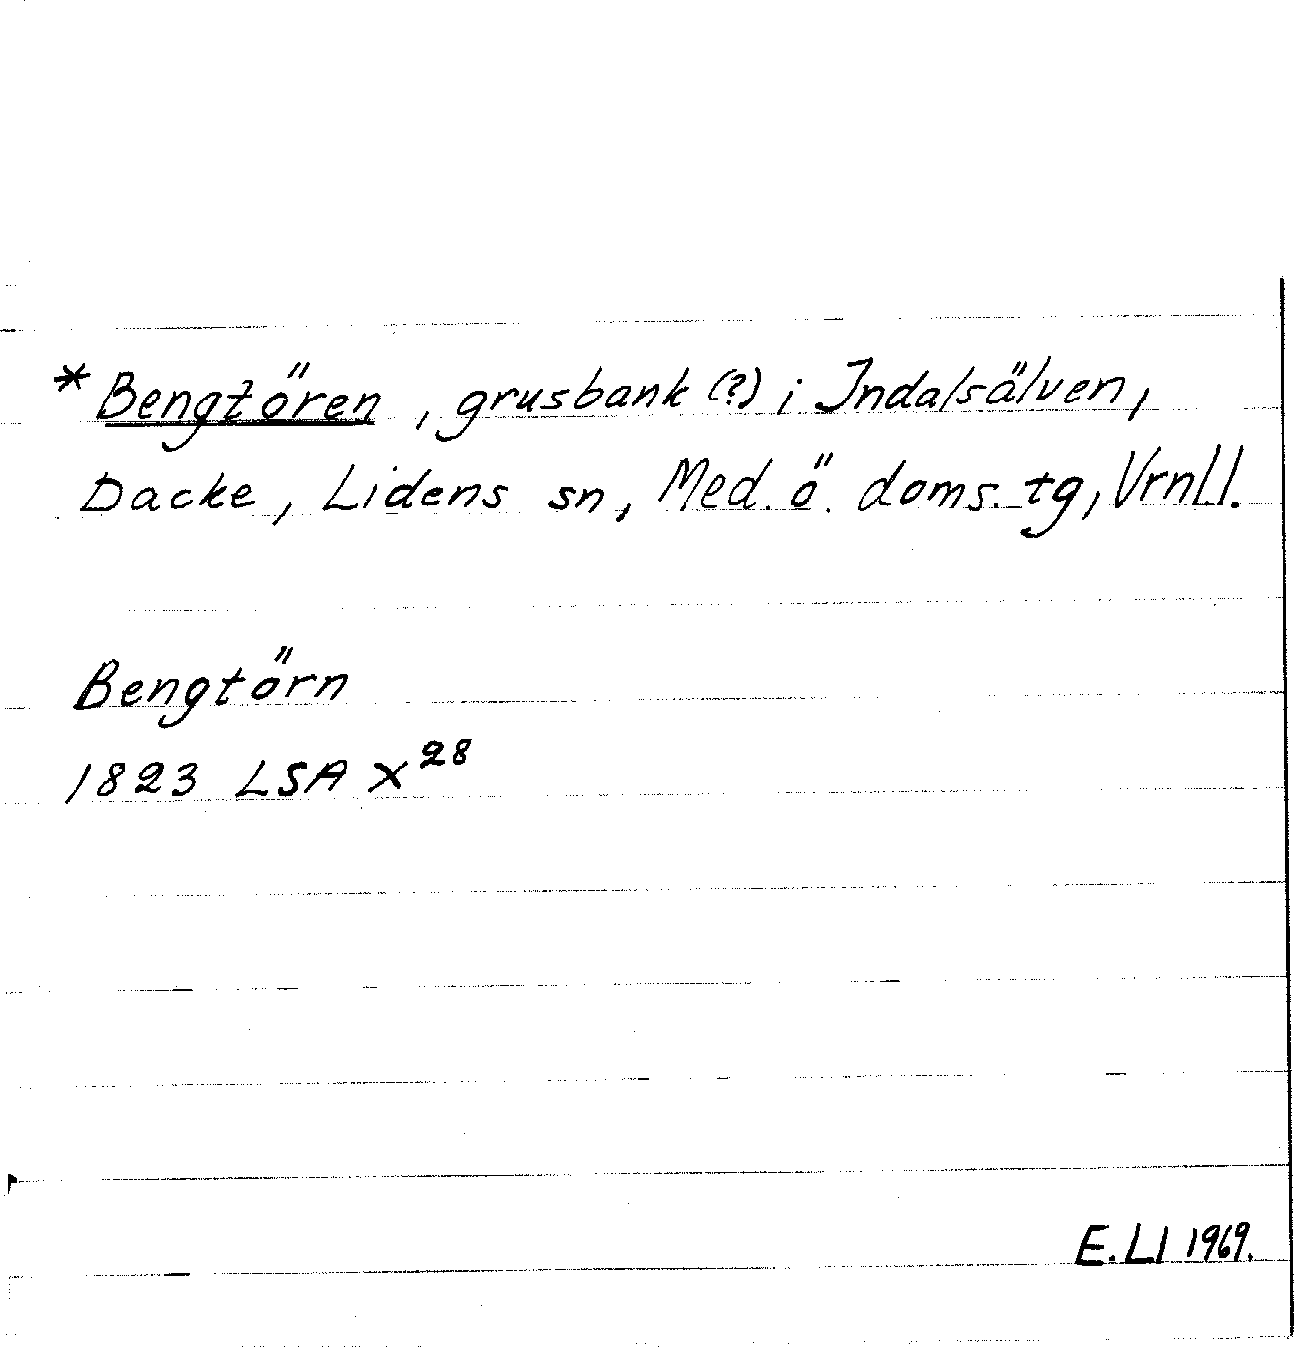 * Bengtören, grusbank (?) i Indalsälven,
Dacke, Lidens sn, Med. ö. doms. tg, Vrnll.
Bengtörn
1823 LSA X²⁸
E. LI 1969.